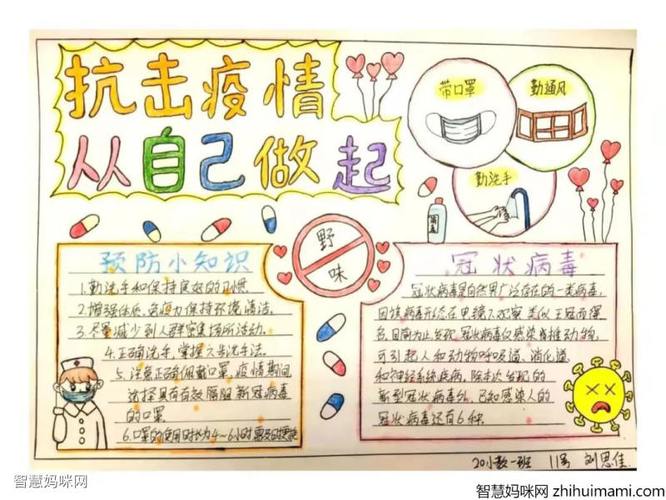 抗击疫情
从自己做起
带口罩
勤通风
勤洗手
野
味
预防小知识
1.勤洗手和保持良好的习惯
2.增强体质、免疫力保持环境清洁.
3.尽量减少到人群密集场所活动.
4.正确洗手,掌握六步洗手法.
5.注意正确佩戴口罩,疫情期间
选择具有有效 新冠病毒
的口罩
6.口罩的使用时长为4~6小时
冠状病毒
冠状病毒是自然界广泛存在的一类病毒,
因该病毒形态在 镜下观察类似王冠而得
名.目前为止发现,冠状病毒仅感染脊椎动物,
可引起人和动物呼吸道、消化道
和神经系统疾病.除本次 的
新型冠状病毒外,已知感染人的
冠状病毒还有6种.
20小教一班 11号 刘思佳
智慧妈咪网
智慧妈咪网 zhihuimami.com